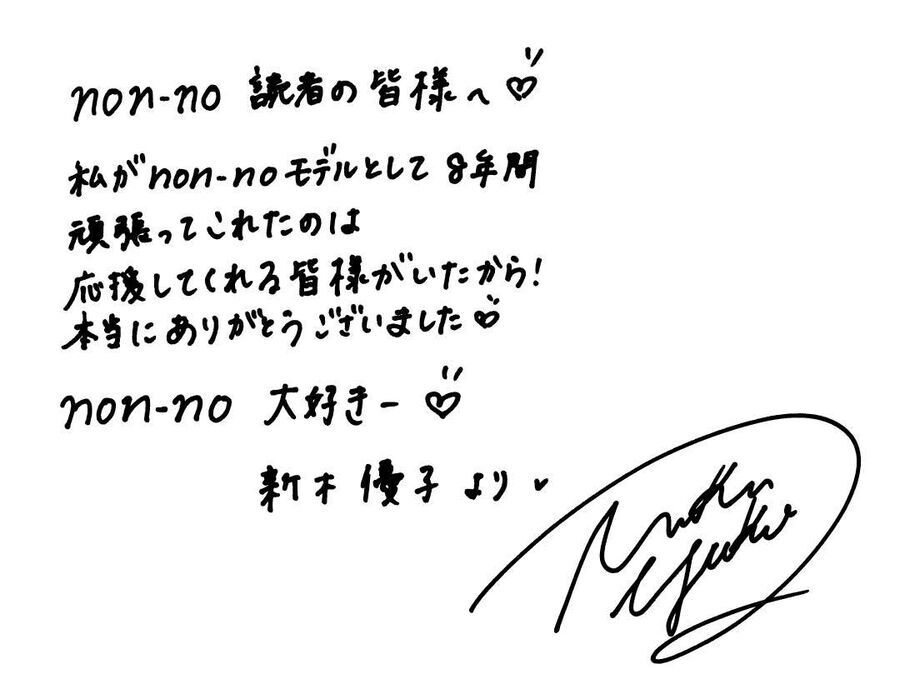 non-no 読者の皆様へ♡
私がnon-noモデルとして8年間
頑張ってこれたのは
応援してくれる皆様がいたから!
本当にありがとうございました♡
non-no 大好きー♡
新木優子より♥